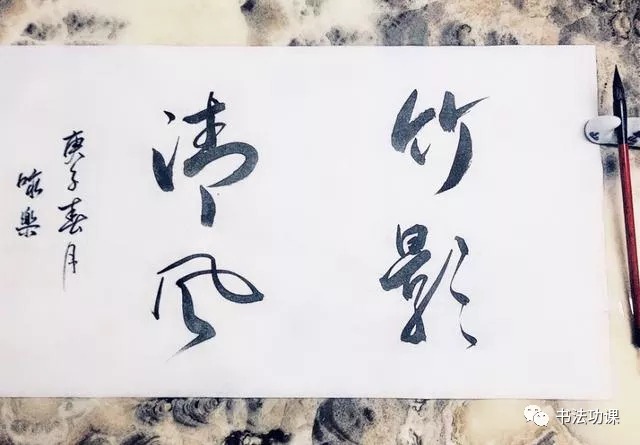 竹影
清风
庚子春月
咏乐
书法功课